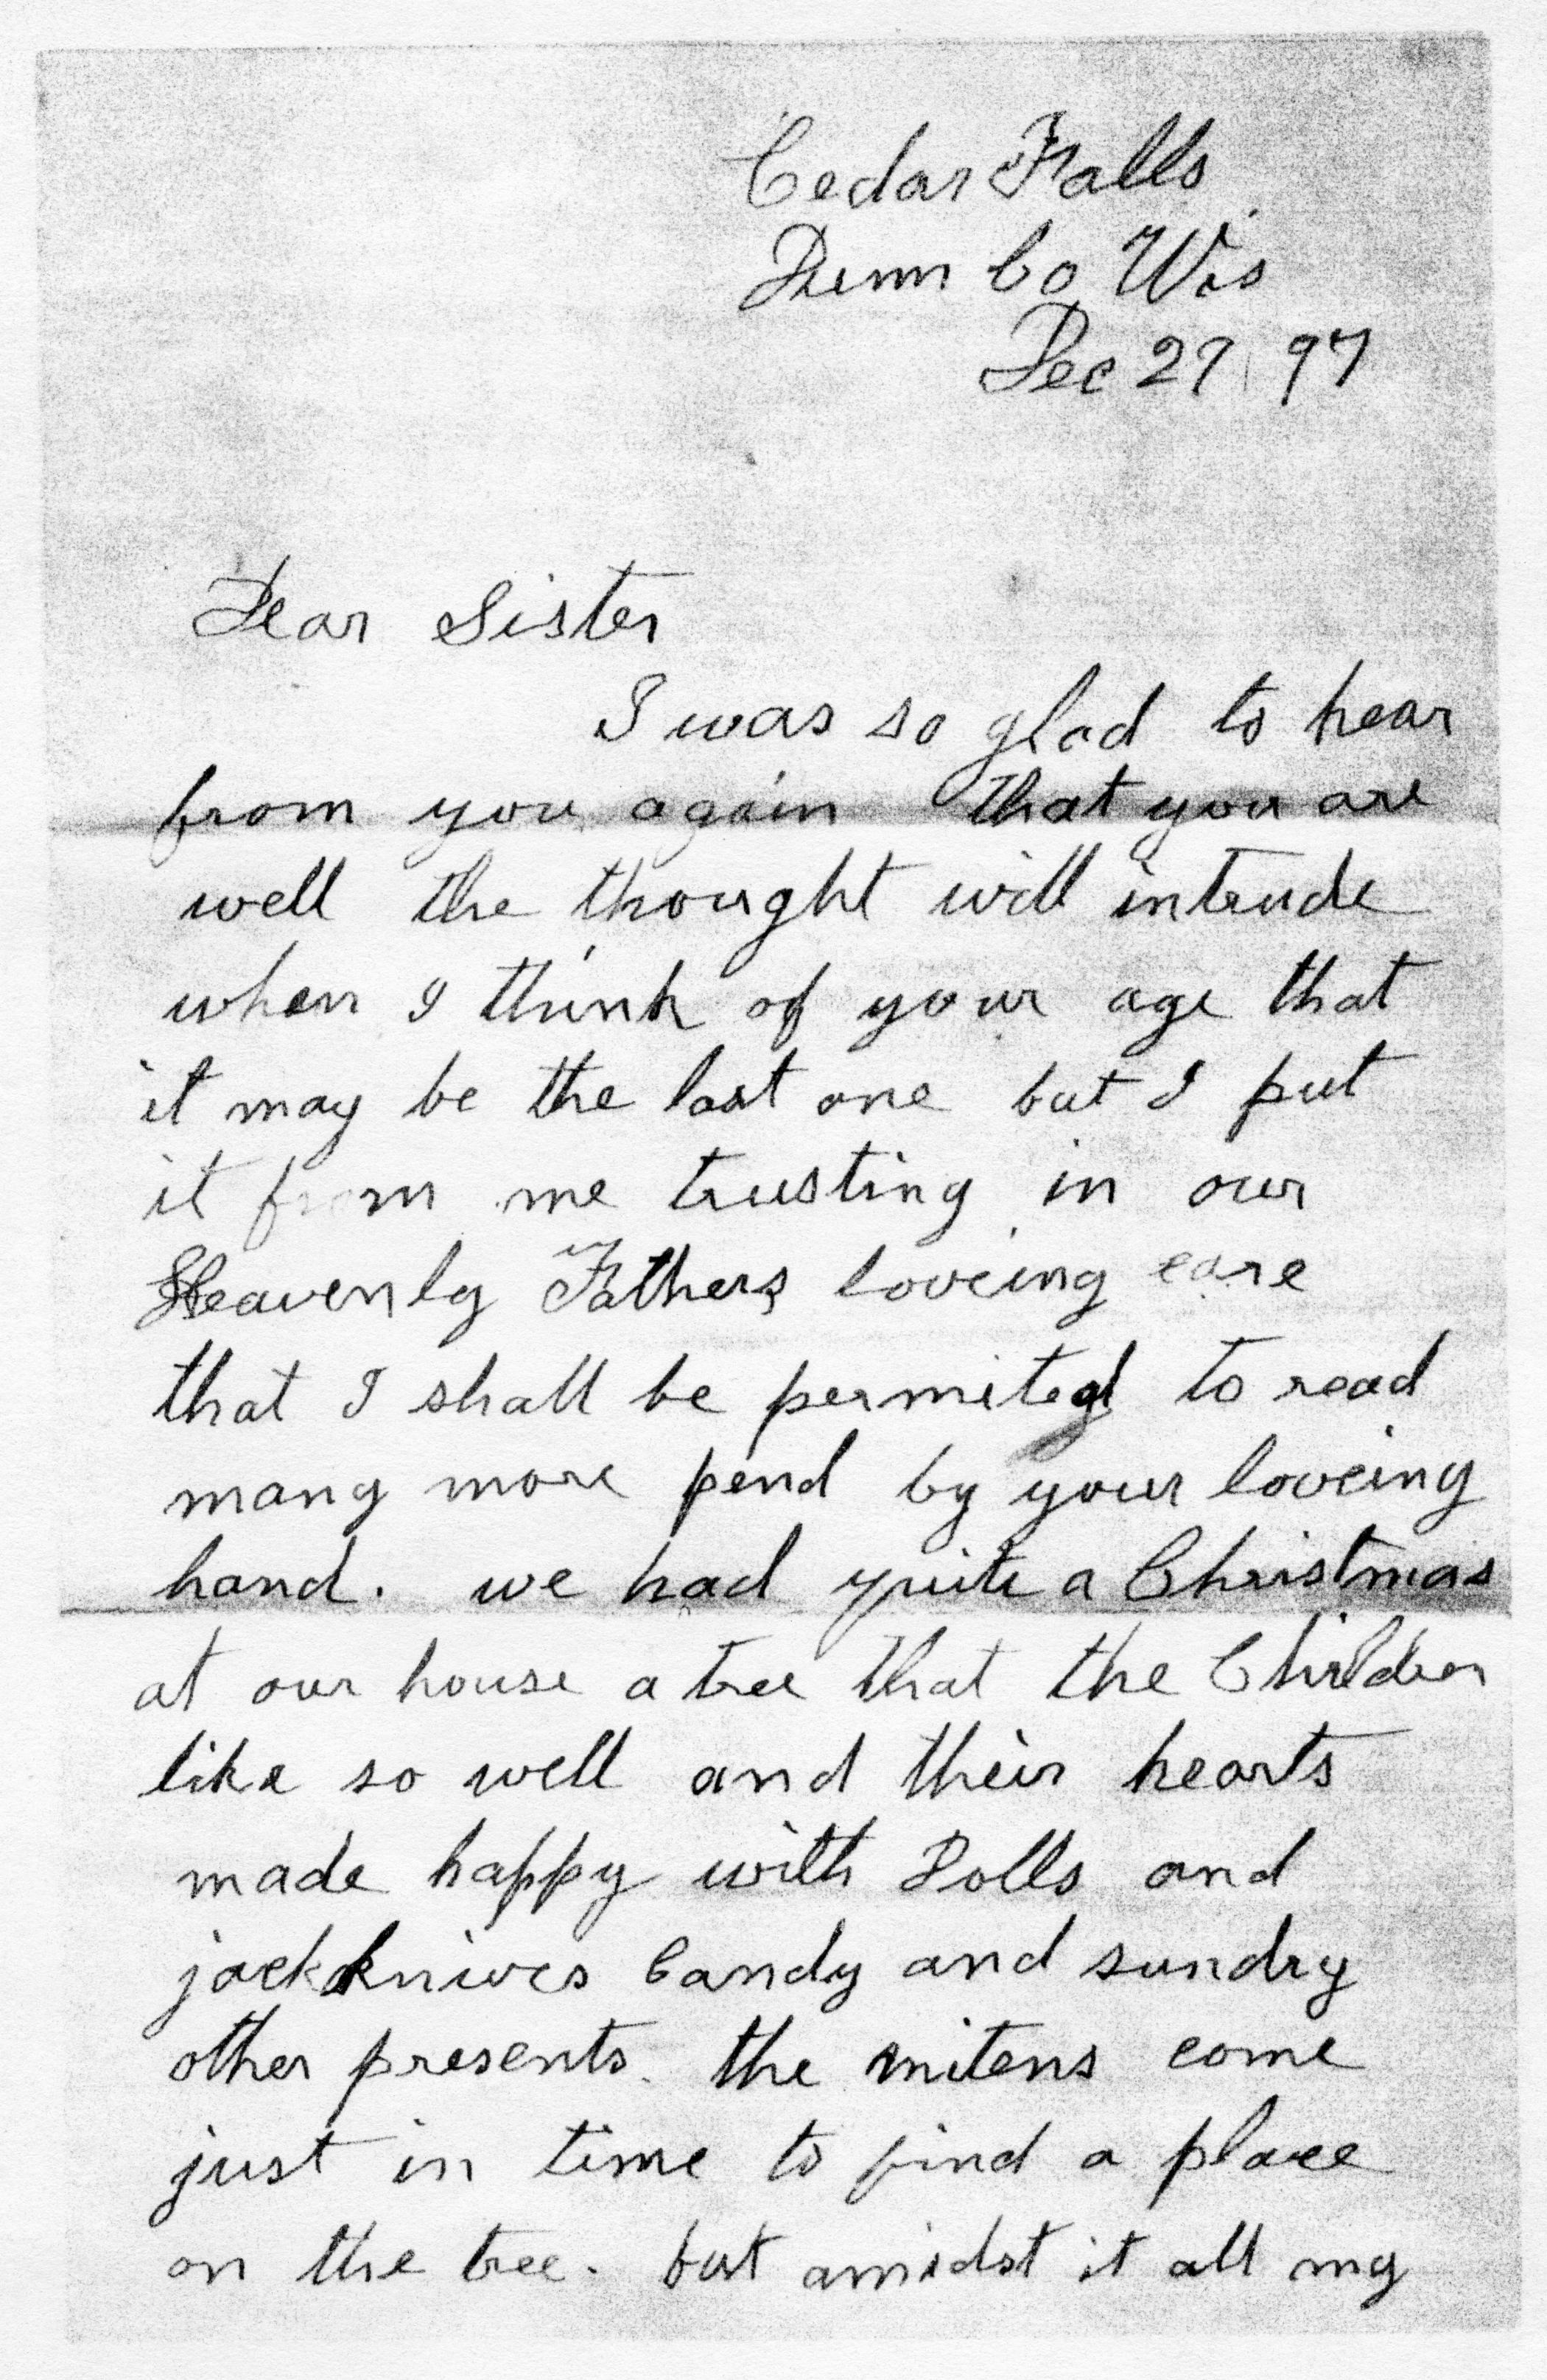 Cedar Falls
Dunn Co Wis
Dec 27 97
Dear Sister
I was so glad to hear
from you again that you are
well the thought will intrude
when I think of your age that
it may be the last one but I put
it from me trusting in our
Heavenly Fathers loveing care
that I shall be permited to read
many more pend by your loveing
hand. we had quite a Christmas
at our house a tree that the Children
like so well and their hearts
made happy with Dolls and
jackknives Candy and sundry
other presents. the mitens come
just in time to find a place
on the tree. but amidst it all my